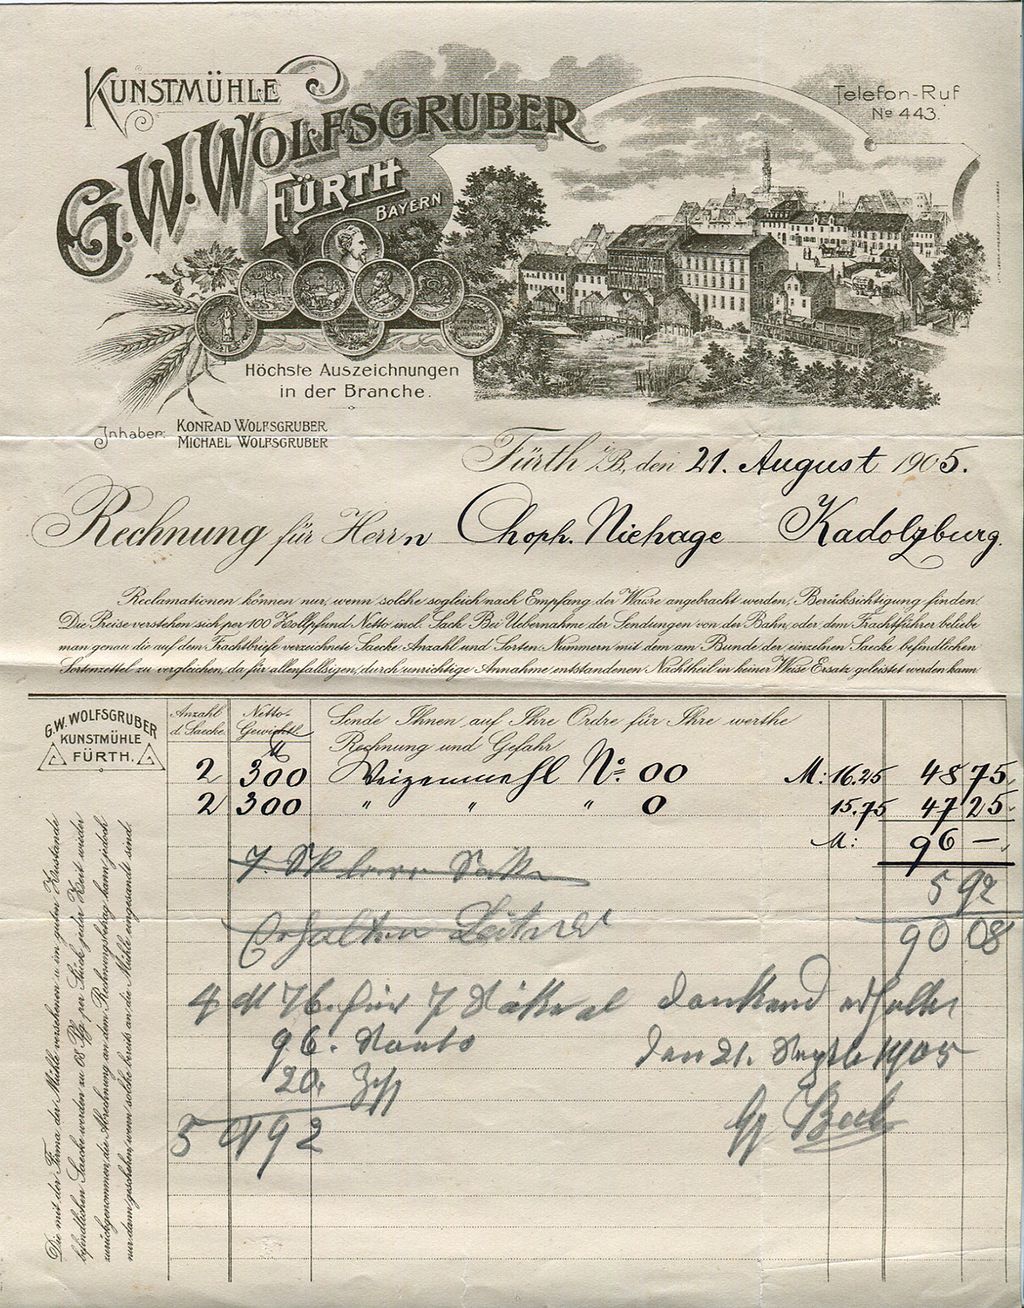 KUNSTMÜHLE
G. W. WOLFSGRUBER
FÜRTH
BAYERN
Telefon-Ruf
No 443.
Höchste Auszeichnungen
in der Branche.
Inhaber: KONRAD WOLFSGRUBER
MICHAEL WOLFSGRUBER
Fürth i/B, den 21. August 1905.
Rechnung für Herrn Choph. Niehage Kadolzburg.
Reclamationen können nur, wenn solche sogleich nach Empfang der Waare angebracht werden, Berücksichtigung finden.
Die Preise verstehen sich per 100 Zollpfund Netto incl. Sack. Bei Uebernahme der Sendungen von der Bahn, oder dem Frachtführer beliebe
man genau die auf dem Frachtbriefe verzeichnete Saecke-Anzahl und Sorten-Nummern mit dem am Bunde der einzelnen Saecke befindlichen
Sortenzettel zu vergleichen, da für allenfallsigen, durch unrichtige Annahme entstandenen Nachtheil in keiner Weise Ersatz geleistet werden kann
G. W. WOLFSGRUBER
KUNSTMÜHLE
FÜRTH.
Anzahl
d. Saecke
Netto-
Gewicht
Sende Ihnen auf Ihre Ordre für Ihre werthe
Rechnung und Gefahr
2 300 Weizenmehl No 00 M: 16.25 48 75
2 300 " " " 0 15.75 47 25
M: 96 —
5 92
90 08
4 M 76. für 7 dankend erhalten
96. Sconto
den 21. Septb 1905
20.
5 M 92
Die mit der Firma der Mühle versehenen u. im guten Zustande
befindlichen Saecke werden zu 68 Pfg. per Stück jeder Zeit wieder
zurückgenommen, die Abrechnung an dem Rechnungsbetrag kann jedoch
nur dann geschehen, wenn solche bereits an die Mühle eingesandt sind.